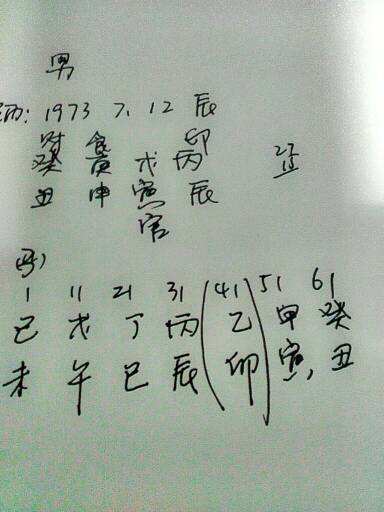 男
: 1973 7. 12 辰
财 食 印
癸 庚 戊 丙
丑 申 寅 辰
官
1 11 21 31 (41) 51 61
己 戊 丁 丙 乙 甲 癸
未 午 巳 辰 卯 寅, 丑